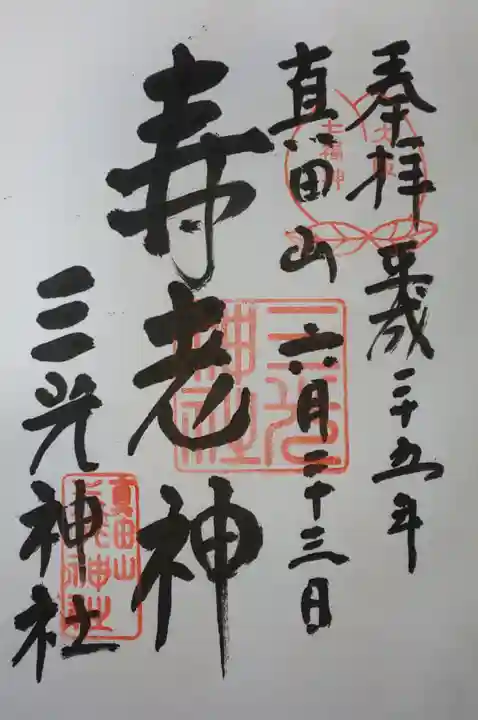 奉拝 平成二十五年
真田山 六月二十三日
寿老神
三光神社
大阪
七福神
三光
神社
真田山